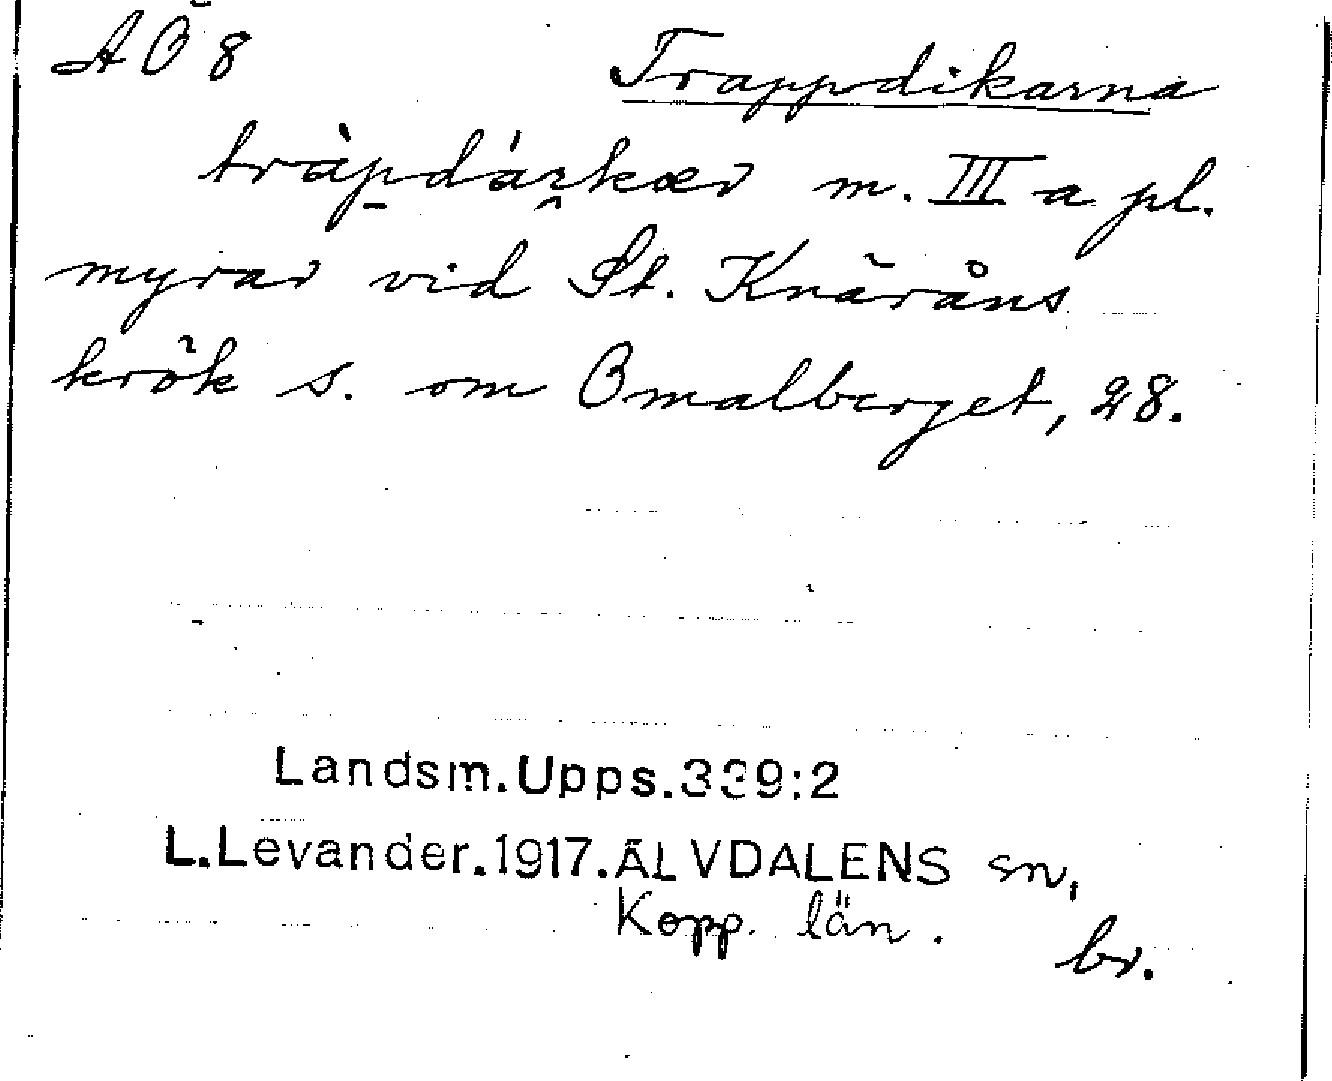 AÖ 8 Trappdikarna
tràpdáʀkær m. III a pl.
myrar vid St. Knäråns
krök s. om Omalberget, 28.
Landsm.Upps.339:2
L.Levander.1917.ÄLVDALENS sn,
Kopp. län.
br.